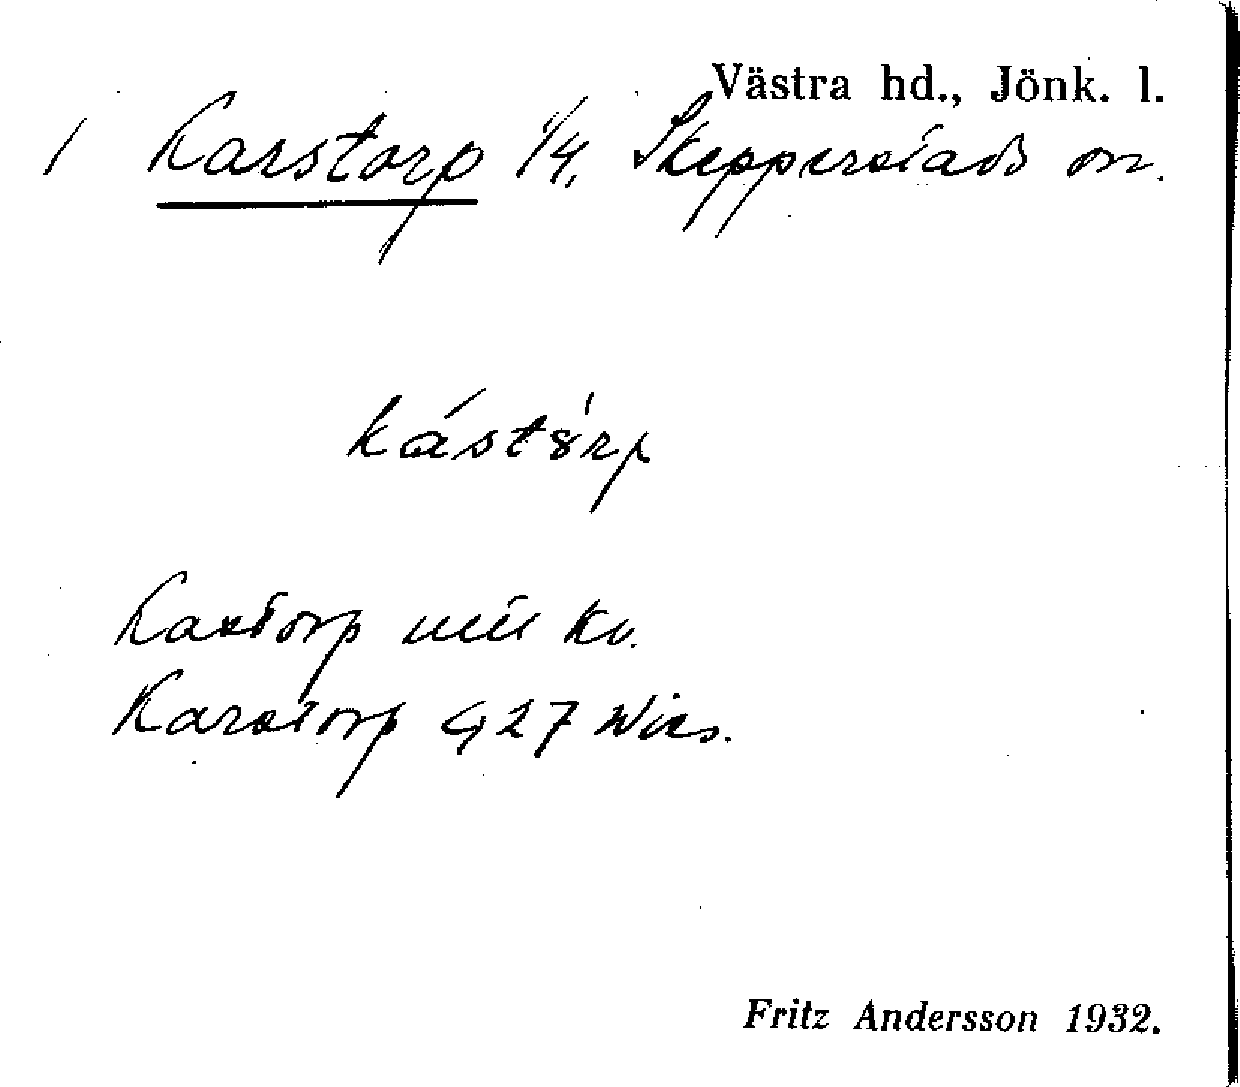 Västra hd., Jönk. l.
1 Karstorp 1/4, Skepperstads sn.
kástórp
Kastorp
Karstorp 927
Fritz Andersson 1932.